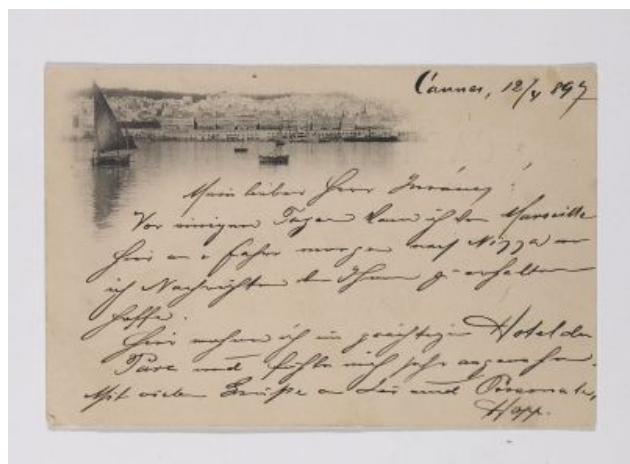 Cannes, 12/4 897
Mein lieber Herr
Vor einigen Tagen kam ich von Marseille
hier an u fahre morgen nach Nizza wo
ich Nachrichten von Ihnen zu erhalten
hoffe.
Hier wohne ich im prächtigen Hotel du
Parc und fühle mich sehr angenehm.
Mit vielen Grüße an Sie und
Hopp.